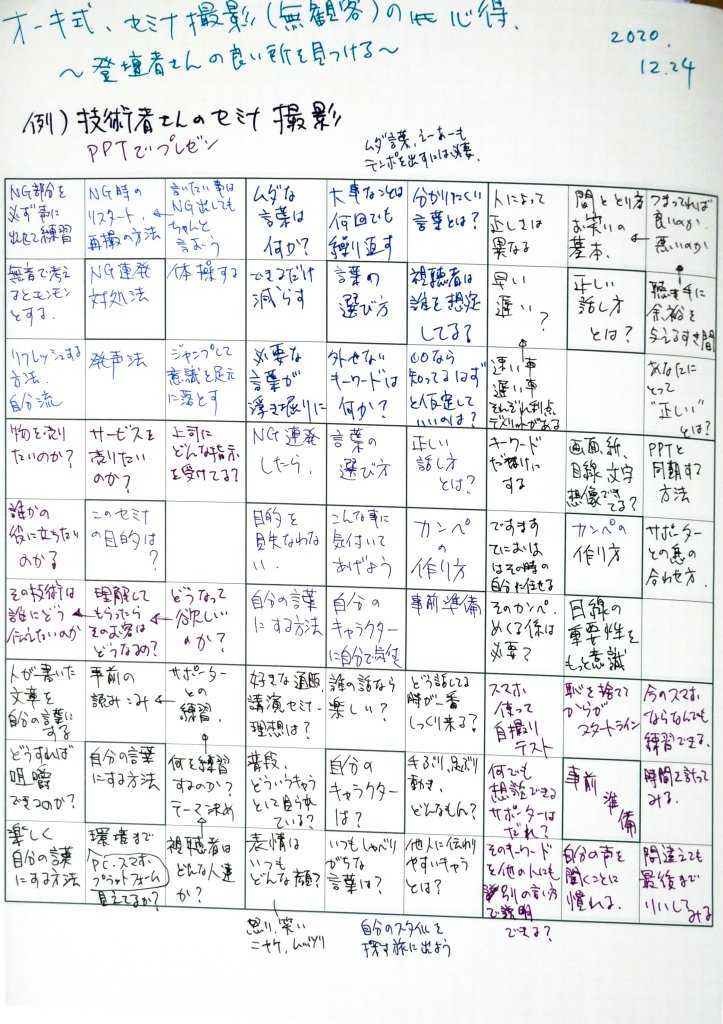 オーキ式、セミナ撮影(無観客)の 心得、
2020.
12.24
～登壇者さんの良い所を見つける～
例)技術者さんのセミナ 撮影
PPTでプレゼン
ムダ言葉、えーあーも
テンポを出すには必要、
NG部分を
必ず事に
出して練習
NG時の
リスタート、
再撮の方法
言いたい事は
NG出しても
ちゃんと
言おう
ムダな
言葉は
何か?
大事なことは
何回でも
繰り返す
分かりにくい
言葉とは?
人によって
正しさは
異なる
間ととり方
お笑いの
基本、
つまってれば
良いのか
悪いのか
無音で考え
るとモンモン
とする、
NG連発
対処法
体操する
できるだけ
減らす
言葉の
選び方
視聴者は
誰を想定
してる?
早い
遅い?
正しい
話し方
とは?
聴き手に
余裕を
与えるすき間
リフレッシュする
方法、
自分流
発声法
ジャンプして
意識を足元
に落とす
必要な
言葉が
浮き掘りに
外せない
キーワードは
何か?
〇〇なら
知ってるはず
と仮定して
いいのは?
速い事
遅い事
それぞれ利点
デメリットがある
あなたに
とって
“正しい”
とは?
物を売り
たいのか?
サービスを
売りたい
のか?
上司に
どんな指示
を受けてる?
NG連発
したら、
言葉の
選び方
正しい
話し方
とは?
キーワード
だけに
する
画面、紙、
目線、文字
想像でき
てる?
PPTと
同期する
方法
誰かの
役に立ちたい
のかる?
このセミナ
の目的は
?
目的を
見失わな
い、
こんな事に
気付いて
あげよう
カンペ
の
作り方
ですます
てにおは
はその時の
自分に任せる
カンペの
作り方
サポーター
との息の
合わせ方、
その技術は
誰にどう
伝えたいのか
理解して
もらったら
そのお客は
どうなるの?
どうなって
欲しい
のか?
自分の言葉
にする方法
自分の
キャラクター
に自分で気付く
事前準備
そのカンペ、
めくる係は
必要?
目線の
重要性を
もっと意識
人が書いた
文章を
自分の言葉に
する
事前の
読みこみ
サポーター
との
練習、
好きな通販、
講演セミナー
理想は?
誰の話なら
楽しい?
どう話してる
時が一番
しっくり来る?
スマホ
使って
自撮り
テスト
恥を捨てて
からが
スタートライン
今のスマホ
ならなんでも
練習できる、
どうすれば
咀嚼
できつのか?
自分の言葉
にする方法
何を練習
するのか?
テーマ決め
普段、
どういうキャラ
として見られ
ている?
自分の
キャラクター
は?
手ぶり、足ぶり
動き、
どんなもん?
何でも
想談できる
サポーターは
だれ?
事前
準
備
時間を計って
みる、
楽しく
自分の言葉
にする方法
環境まで
PC、スマホ、
プラットフォーム
見えてるか?
視聴者は
どんな人達
か?
表情は
いつも
どんな顔?
いつもしゃべり
がちな
言葉は?
他人に伝わり
やすいキャラ
とは?
そのキーワード
を他の人にも
別の言い方
で説明
できる?
自分の声を
聞くことに
慣れる、
間違えても
最後まで
してみる
怒り、笑い
ニヤケ、ムッツリ
自分のスタイルを
探す旅に出よう